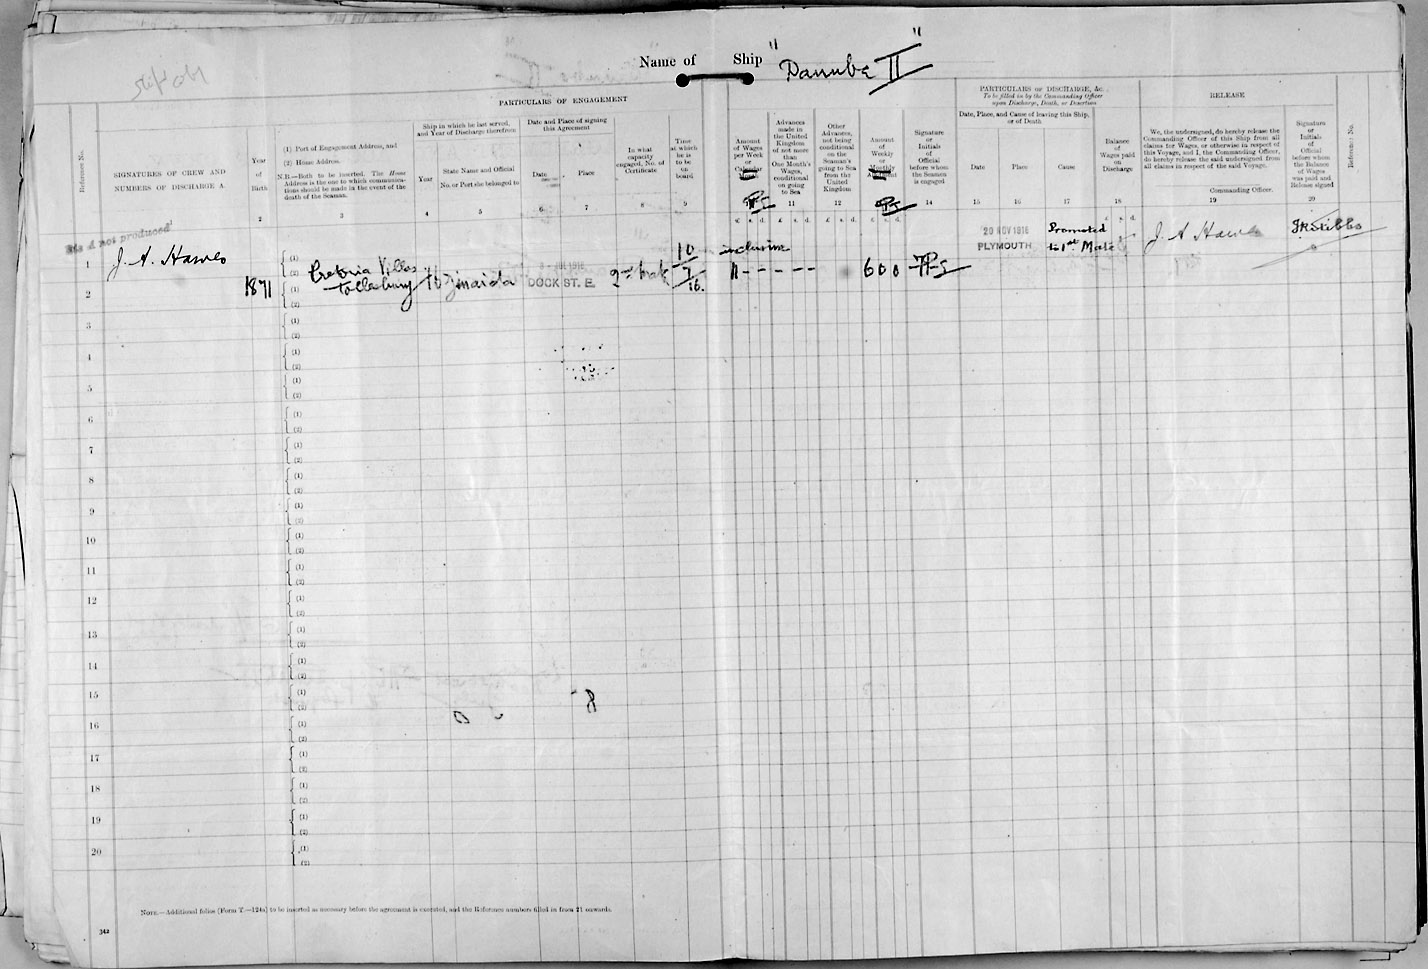 Name of Ship "Danube II"
PARTICULARS OF ENGAGEMENT
PARTICULARS OF DISCHARGE, &c.
To be filled in by the Commanding Officer
upon Discharge, Death, or Desertion
RELEASE
Reference No.
SIGNATURES OF CREW AND
NUMBERS OF DISCHARGE A.
Year
of
Birth
2
(1) Port of Engagement Address, and
(2) Home Address.
N.B.—Both to be inserted. The Home
Address is the one to which communica-
tions should be made in the event of the
death of the Seaman.
3
Ship in which he last served,
and Year of Discharge therefrom
Year
4
State Name and Official
No. or Port she belonged to
5
Date and Place of signing
this Agreement
Date
6
Place
7
In what
capacity
engaged, No. of
Certificate
8
Time
at which
he is
to be
on
board
9
Amount
of Wages
per Week
or
Calendar
Advances
made in
the United
Kingdom
of not more
than
One Month's
Wages,
conditional
on going
to Sea
11
Other
Advances,
not being
conditional
on the
Seaman's
going to Sea
from the
United
Kingdom
12
Amount
of
Weekly
or
Monthly
Signature
or
Initials
of
Official
before whom
the Seaman
is engaged
14
Date, Place, and Cause of leaving this Ship,
or of Death
Date
15
Place
16
Cause
17
Balance
of
Wages paid
on
Discharge
18
We, the undersigned, do hereby release the
Commanding Officer of this Ship from all
claims for Wages, or otherwise in respect of
this Voyage, and I, the Commanding Officer,
do hereby release the said undersigned from
all claims in respect of the said Voyage.
Commanding Officer.
19
Signature
or
Initials
of
Official
before whom
the Balance
of Wages
was paid and
Release signed
20
Reference No.
£ s. d. £ s. d. £ s. d. £ s. d. £ s. d.
not produced
1 J. A. Hawes
1871
Pretoria Villas
Tollesbury
16 Zinaida
JUL 1916
DOCK ST. E.
2nd Mate
10
7
16.
inclusive
11 - - - - - -
6 0 0
20 NOV 1916
PLYMOUTH
Promoted
to 1st Mate
J. A. Hawes
2
3
4
5
6
7
8
9
10
11
12
13
14
15
16
17
18
19
20
(1)
(2)
NOTE.—Additional folios (Form T.—124a) to be inserted as necessary before the agreement is executed, and the Reference numbers filled in from 21 onwards.
342